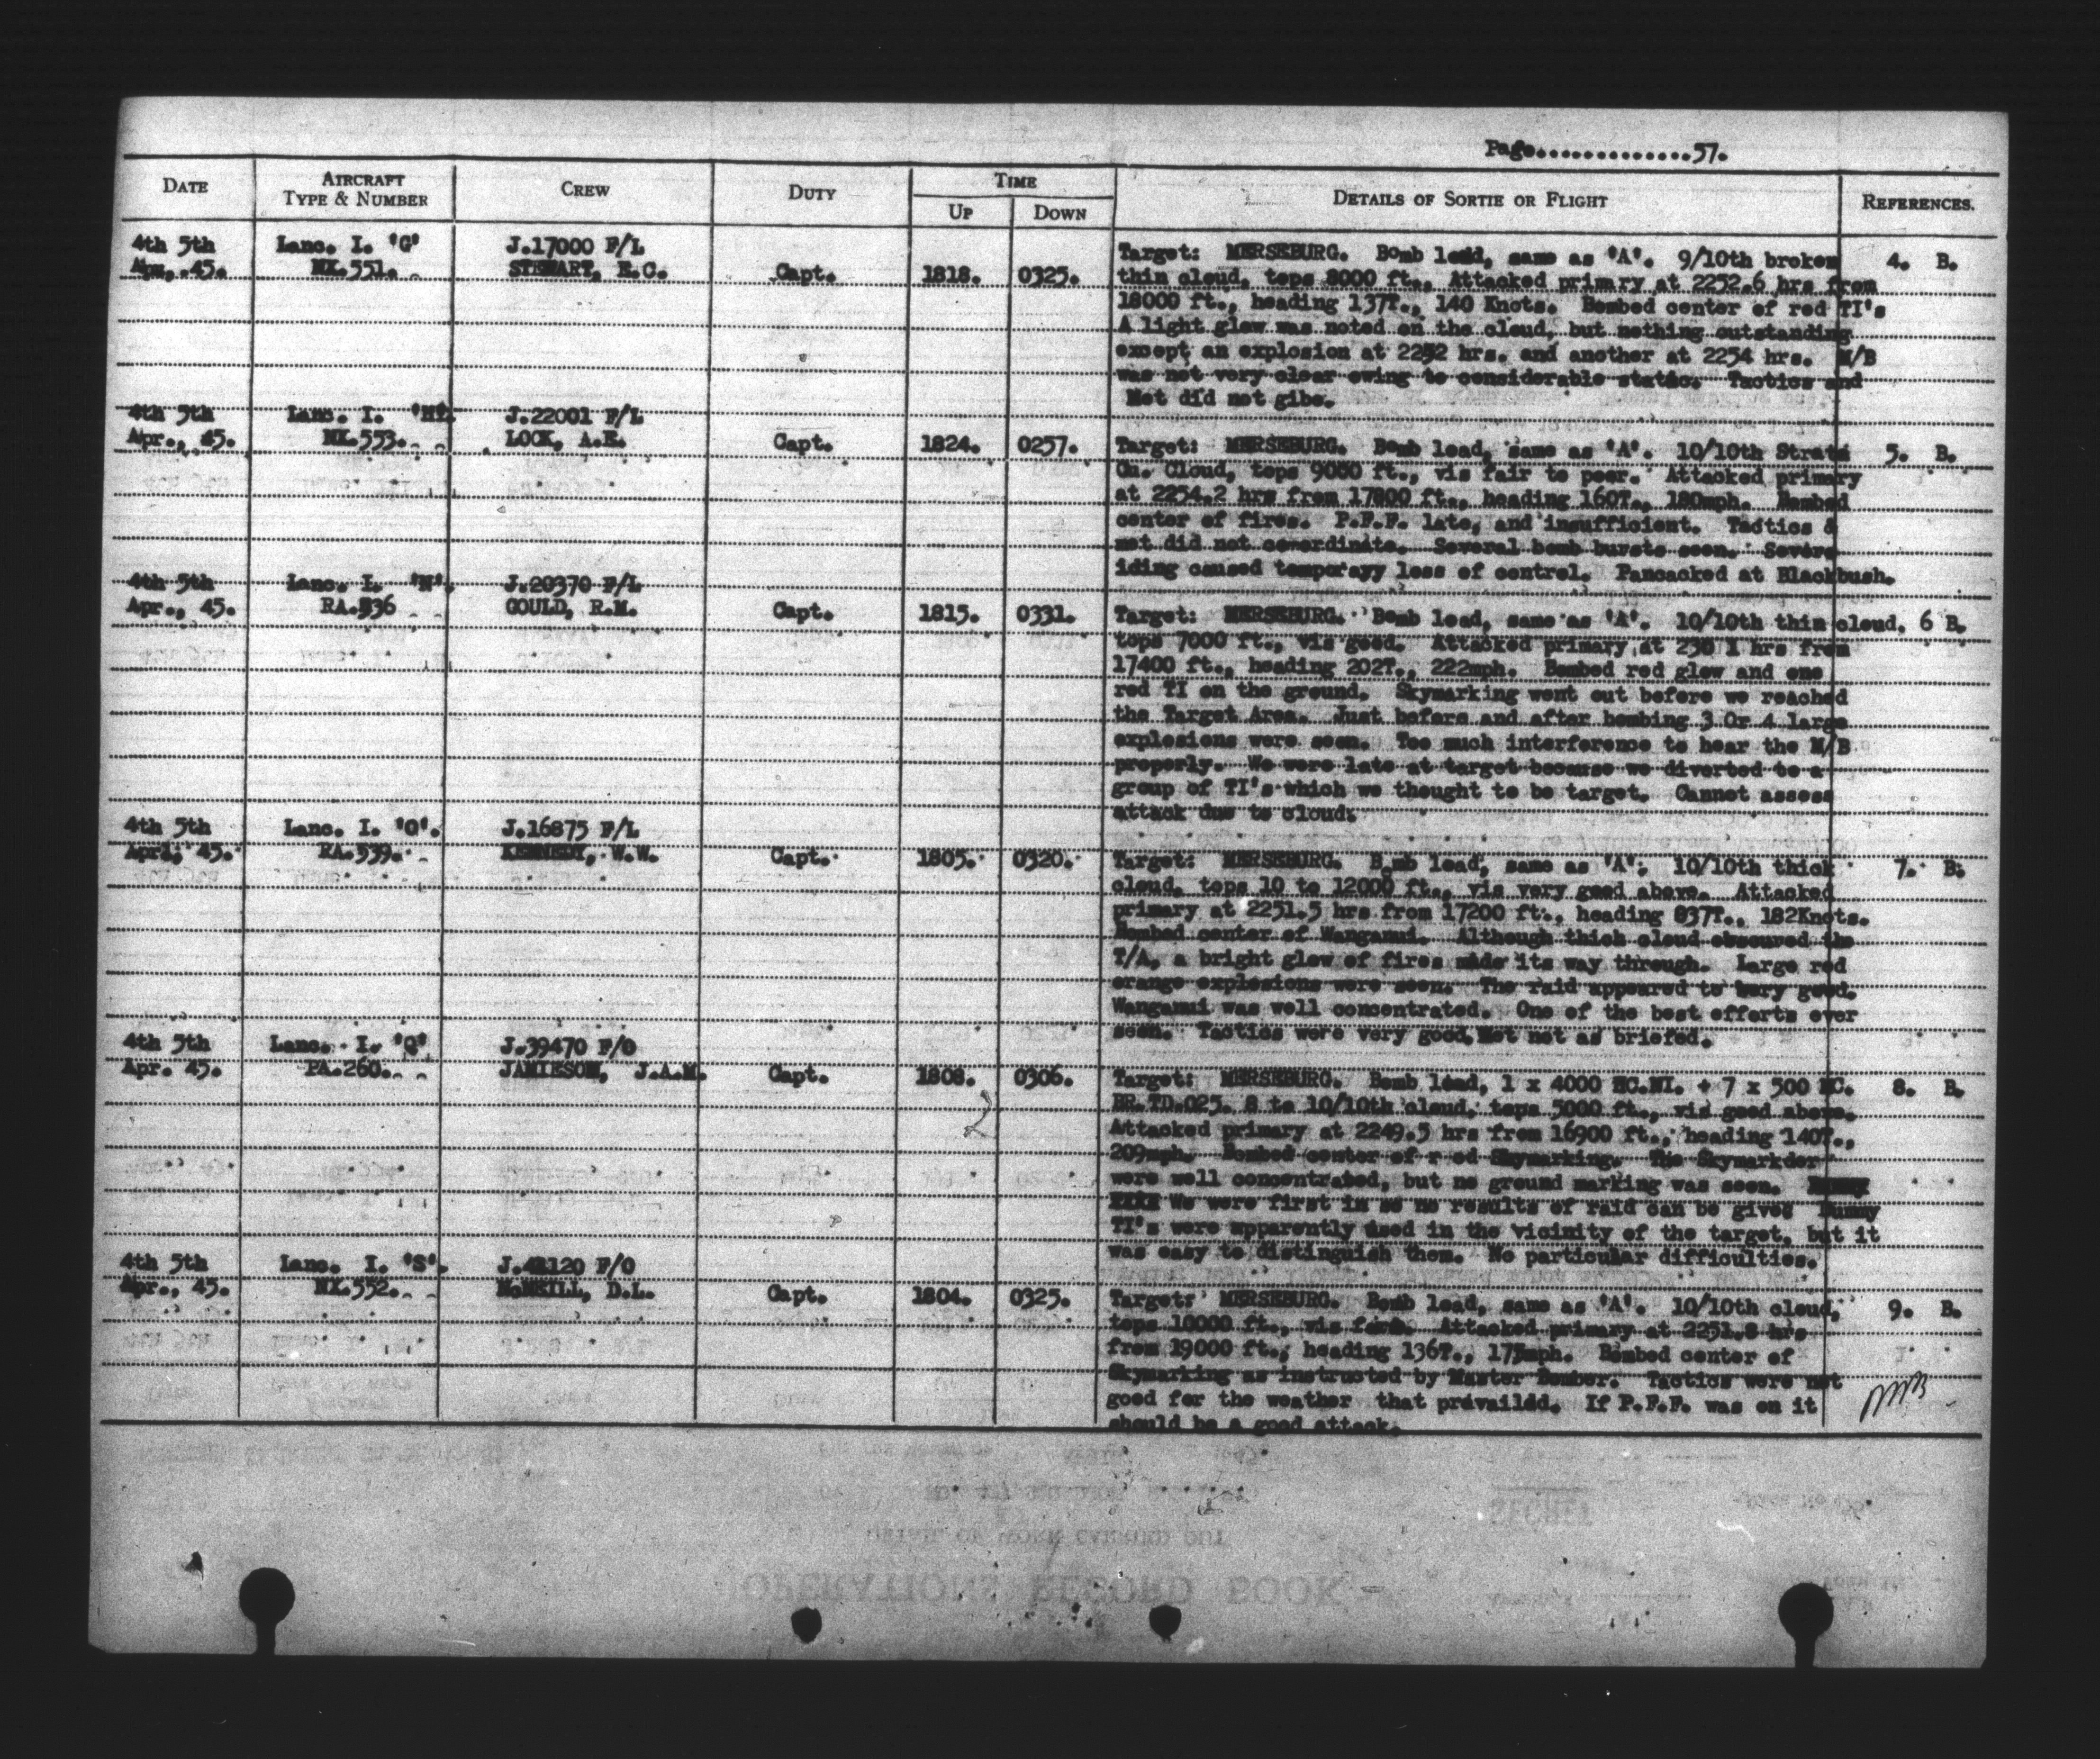 Page..............57.
DATE AIRCRAFT TYPE & NUMBER CREW DUTY TIME UP DOWN DETAILS OF SORTIE OR FLIGHT REFERENCES.
4th 5th Lanc. I. 'G' J.17000 F/L
Apr,.45. NX.551. STEWART, E.C. Capt. 1818. 0325. Target: MERSEBURG. Bomb load, same as 'A'. 9/10th broken 4. B.
thin cloud, tops 8000 ft., Attacked primary at 2252.6 hrs from
18000 ft., heading 137T., 140 Knots. Bombed center of red TI's
A light glow was noted on the cloud, but nothing outstanding
except an explosion at 2252 hrs. and another at 2254 hrs. M/B
was not very clear owing to considerable static. Tactics and
Met did not gibe.
4th 5th Lanc. I. J.22001 F/L
Apr., 45. NX.553. LOCK, A.E. Capt. 1824. 0257. Target: MERSEBURG. Bomb load, same as 'A'. 10/10th Strato 5. B.
Cu. Cloud, tops 9000 ft., vis fair to poor. Attacked primary
at 2254.2 hrs from 17800 ft., heading 160T., 180mph. Bombed
center of fires. P.F.F. late, and insufficient. Tactics &
met did not coordinate. Several bomb bursts seen. Severe
icing caused temporayy loss of control. Pancacked at Blackbush.
4th 5th Lanc. I. J.20370 F/L
Apr., 45. RA.536 GOULD, R.M. Capt. 1815. 0331. Target: MERSEBURG. Bomb load, same as 'A'. 10/10th thin cloud, 6 B.
tops 7000 ft., vis good. Attacked primary at 230 1 hrs from
17400 ft., heading 202T., 222mph. Bombed red glow and one
red TI on the ground. Skymarking went out before we reached
the Target Area. Just before and after bombing 3 Or 4 large
explosions were seen. Too much interference to hear the M/B
properly. We were late at target because we diverted to a
group of TI's which we thought to be target. Cannot assess
attack due to cloud.
4th 5th Lanc. I. 'O'. J.16875 F/L
April, 45. RA.539. KENNEDY, W.W. Capt. 1805. 0320. Target: MERSEBURG. Bomb load, same as 'A'. 10/10th thick 7. B.
cloud, tops 10 to 12000 ft., vis very good above. Attacked
primary at 2251.5 hrs from 17200 ft., heading 037T., 182Knots.
Bombed center of Wanganui. Although thich cloud obscured the
T/A, a bright glow of fires made its way through. Large red
orange explosions were seen. The raid appeared to very good.
Wanganui was well concentrated. One of the best efforts ever
seen. Tactics were very good, Met not as briefed.
4th 5th Lanc. I. 'Q' J.39470 F/O
Apr. 45. PA.260. JAMIESON, J.A.M. Capt. 1808. 0306. Target: MERSEBURG. Bomb load, 1 x 4000 HC.NI. + 7 x 500 MC. 8. B.
BR.TD.025. 8 to 10/10th cloud, tops 5000 ft., vis good above.
Attacked primary at 2249.5 hrs from 16900 ft., heading 140T.,
209mph. Bombed center of r ed Skymarking. The Skymarkder
were well concentrated, but no ground marking was seen.
We were first in so no results of raid can be given Dummy
TI's were apparently used in the vicinity of the target, but it
was easy to distinguish them. No particular difficulties.
4th 5th Lanc. I. 'S'. J.42120 F/O
Apr., 45. NX.552. McNEILL, D.L. Capt. 1804. 0325. Target: MERSEBURG. Bomb load, same as 'A'. 10/10th cloud, 9. B.
tops 10000 ft., vis Attacked primary at 2251.8 hrs
from 19000 ft., heading 136T., 175mph. Bombed center of
Skymarking as instructed by Master Bomber. Tactics were not
good for the weather that prevailed. If P.F.F. was on it
should be a good attack.